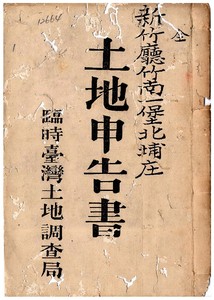 12664
全
新竹廳竹南一堡北埔庄
土地申告書
臨時臺灣土地調查局